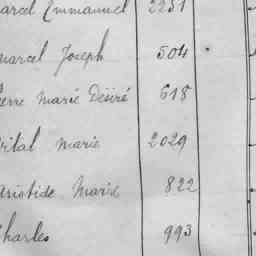 arcel Emmanuel 2231
marcel Joseph 504
ierre Marie Désiré 618
Vital marie 2029
Aristide Marie 822
Charles 993